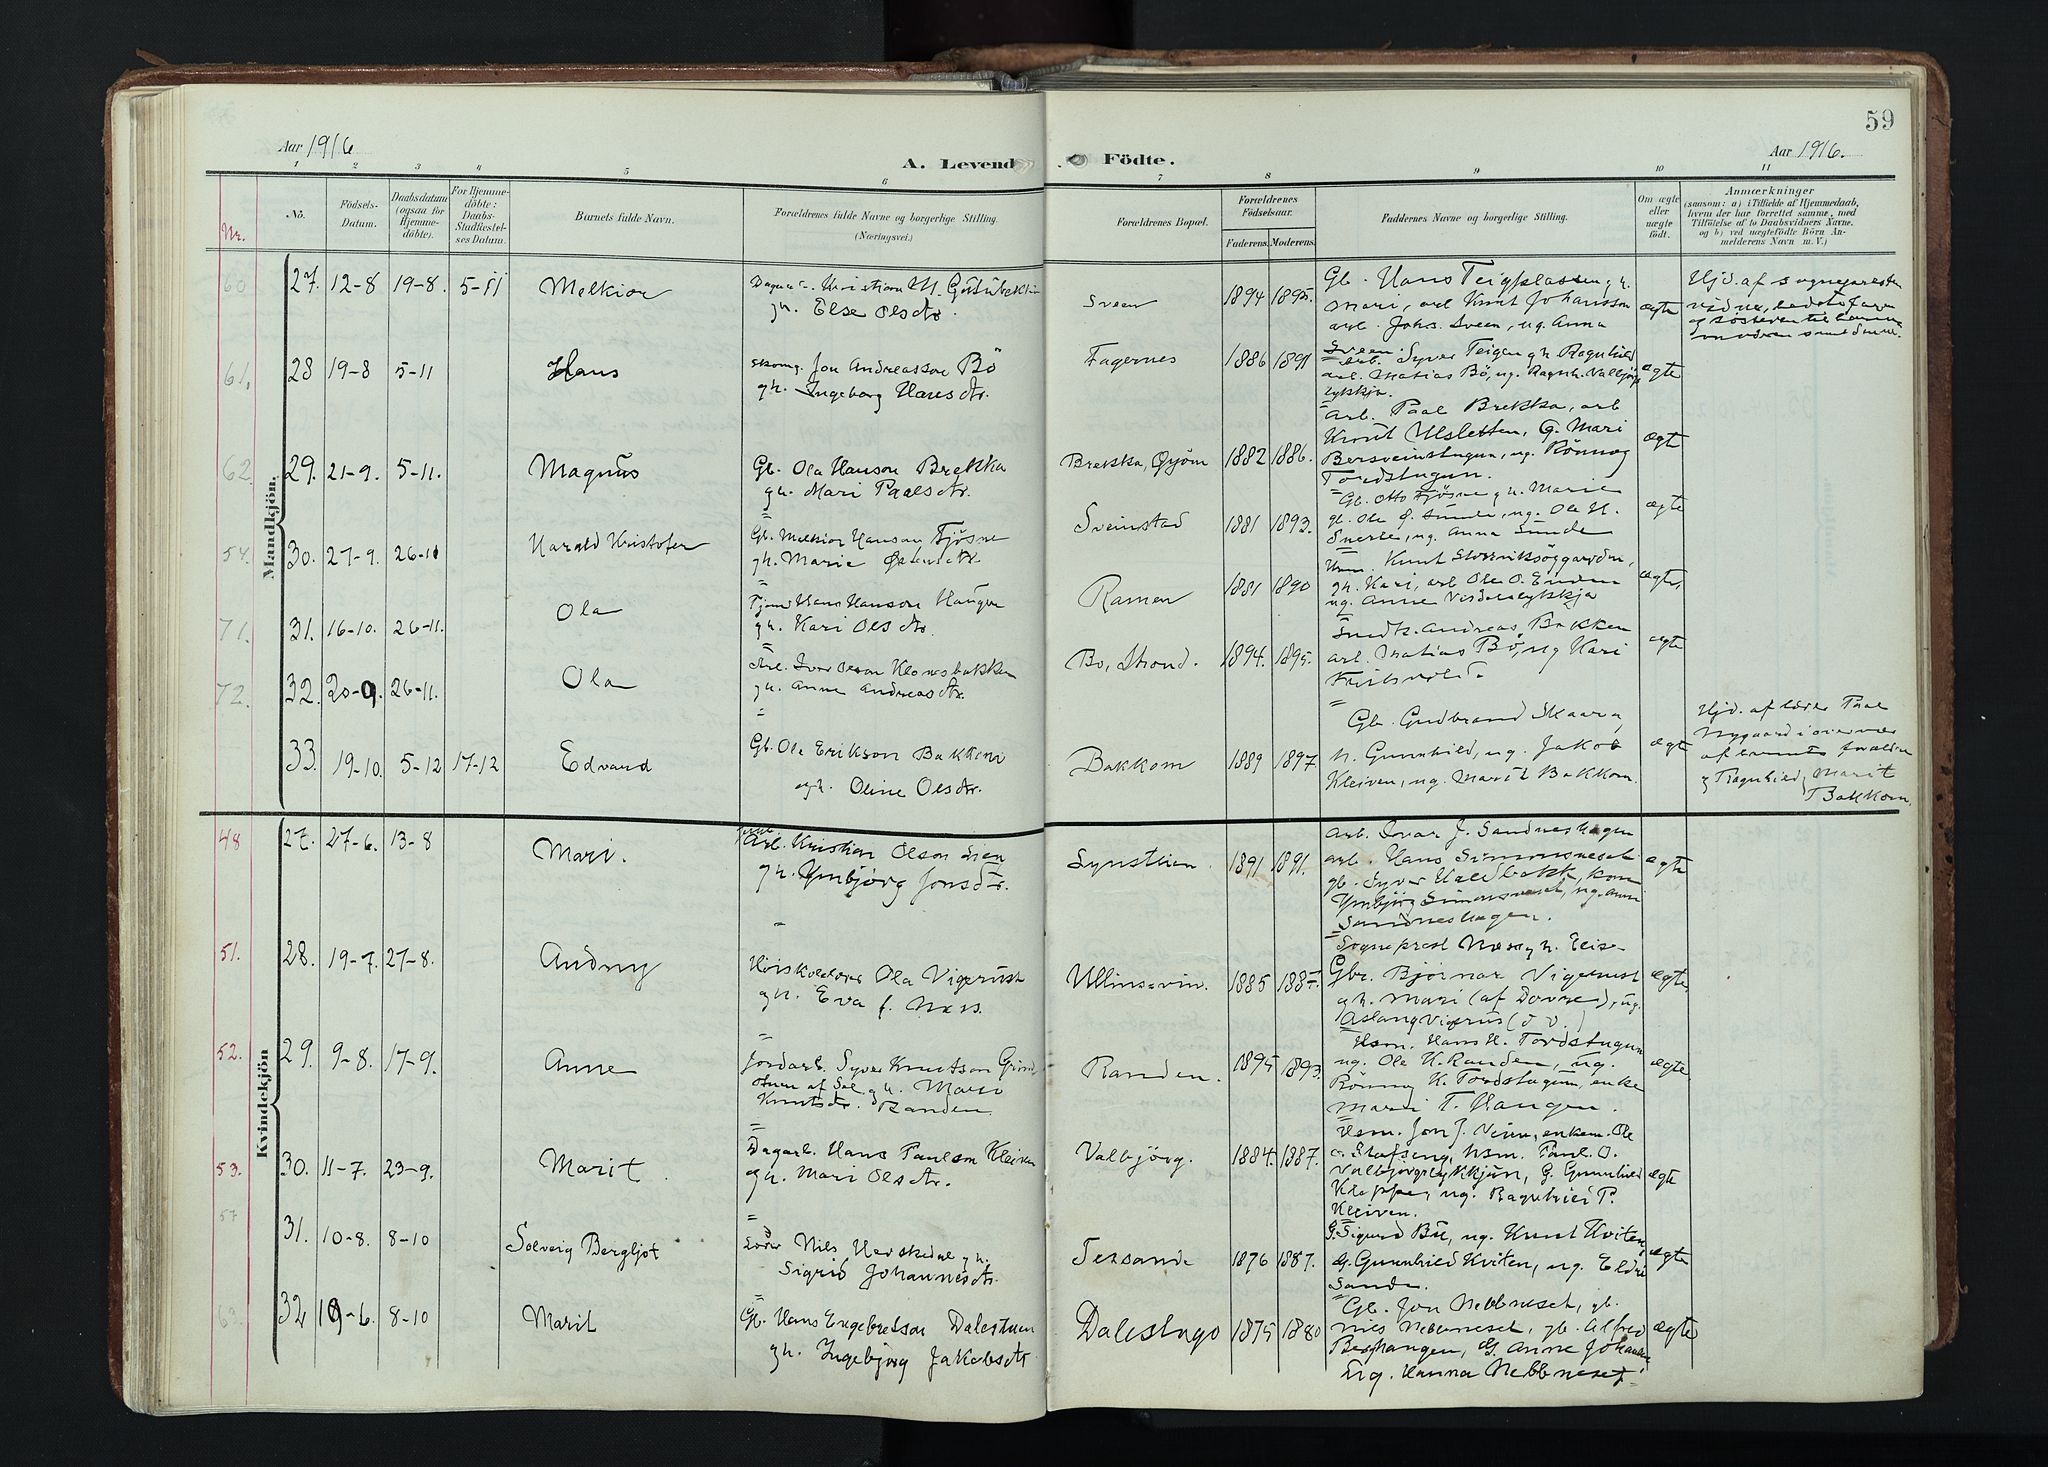 59
Aar 1916
A. Levende Födte.
Aar 1916.
1 2 3 4 5 6 7 8 9 10 11
Nr.
No.
Födsels-
Datum.
Daabsdatum
(ogsaa for
Hjemme-
döbte).
For Hjemme-
döbte:
Daabs-
Stadfæstel-
ses Datum.
Barnets fulde Navn.
Forældrenes fulde Navne og borgerlige Stilling.
(Næringsvei.)
Forældrenes Bopæl.
Forældrenes
Födselsaar.
Faderens.
Moderens.
Faddernes Navne og borgerlige Stilling.
Om ægte
eller
uægte
födt.
Anmærkninger
(saasom: a) i Tilfælde af Hjemmedaab,
hvem der har forrettet samme, med
Tilföielse af to Daabsvidners Navne.
og b) ved uægtefödte Börn An-
melderens Navn m. V.)
Mandkjön.
60 27. 12-8 19-8. 5-11 Melkior
Kristian M.
gh. Else Olsdtr.
Sveen 1894 1895.
Gb. Hans Teigplassen gh.
Mari, arb Knut Johansson
arb. Johs. Sveen, ug. Anna
Sveen.
ægte
Hjd. af sognepresten
61. 28 19-8 5-11 Hans
Skomg. Jon Andreasson Bö
gh. Ingeborg Hansdtr.
Fagernes 1886 1891
arb. Syver Teigen gh Ragnhild
arb. Matias Bö, ug. Ragnh. Valbjörg
lykkja.
ægte
62. 29. 21-9. 5-11. Magnus
Gb. Ola Hanson Brekka
gh. Mari Paalsdtr.
Brekka, Öyjom 1882 1886.
arb. Paal Brekka, arb
Knut Ulsletten, G. Mari
Bersveinstugun, ug. Rönnog
Tordstugun.
ægte
54. 30. 27-9. 26-11 Harald Kristofer
Gb. Melkior Hanson Fjösne
gh. Marie
Sveinstad 1881 1893.
Gb. Otto Fjösne gh. Marie
gb. Ole Ø. Sunde, ug. Ole H.
Snerle, ug. Anna Sunde
ægte
71. 31. 16-10. 26-11. Ola
Hans Hanson Haugen
gh. Kari Olsdtr.
Ramen 1881 1890
Hsm. Knut
gh. Kari, arb Ole O. Enden
ug. Anne
ægte,
72. 32. 20-9. 26-11. Ola
Arb. Ivar Olson Kleivsbakken
gh. Anne Andreasdtr.
Bö, Strond. 1894. 1895.
Smedk. Andreas Bakken
arb. Matias Bö, ug Kari
ægte
33. 19-10. 5-12 17-12 Edvard
Gb. Ole Erikson Bakkom
og h. Oline Olsdtr.
Bakkom 1889 1897
Gb. Gudbrand Skaara,
h. Gunnhild, ug. Jakob
Kleiven, ug. Marit Bakkom.
ægte
Hjd. af lærer Paal
Nygaard i overvær
af barnets forældre
og Ragnhild, Marit
Bakkom.
Kvindekjön
48 27. 27-6. 13-8 Mari.
Arb. Kristian Olson Lien
gh. Ymbjörg Jonsdtr.
Synstlien. 1891 1891.
arb. Ivar J. Sandneshagen
arb. Hans Simonsneset
gb. Syver Haldbakk, kone
Ymbjörg Simonsneset, ug. Anne
Sandneshagen.
ægte
51. 28. 19-7. 27-8. Audny
Höiskolelærer Ola Vigerust
gh. Eva f. Næss.
Ullinsvin. 1885 1885.
Sogneprest Næss gh. Elise
Gbr. Björnar Vigerust
gh. Mari (af Dovre), ug.
Aslaug Vigerus (d. v.)
ægte,
52. 29. 9-8. 17-9. Anne
Jordarb. Syver Knutson Grind
stuen af Sel gh. Mari
Knutsdtr. Randen.
Randen. 1895 1893.
Hsm. Hans H. Tordstugun
ug. Ole K. Randen, ug.
Rönnog K. Tordstugun, enke
Mari T. Haugen.
ægte.
53. 30. 11-7. 23-9. Marit
Dagarb. Hans Paulson Kleiven
gh. Mari Olsdtr.
Valbjörg. 1884. 1887.
Hsm. Jon J. Veien, enkem. Ole
O. Stafseng, hsm. Paul O.
Valbjörgslykkjun, G. Gunnhild
Kleppe, ug. Ragnhild P.
Kleiven.
ægte
57 31. 10-8. 8-10 Solveig Bergljot
Nils Herskedal gh.
Sigrid Johannesdtr.
Tessande 1876 1887.
G. Sigurd Böe, ug. Knut Kviten,
G. Gunnhild Kviten, ug. Eldri
Sande.
ægte
63. 32 10-6. 8-10 Marit
Gb. Hans Engebretson Dalestuen
gh. Ingebjörg Jakobsdtr.
Dalestugo 1875 1880
Gb. Jon Nebbneset, gb.
Nils Nebbneset, gb. Alfred
Berghaugen, G. Anne
ug. Hanna Nebbneset.
ægte